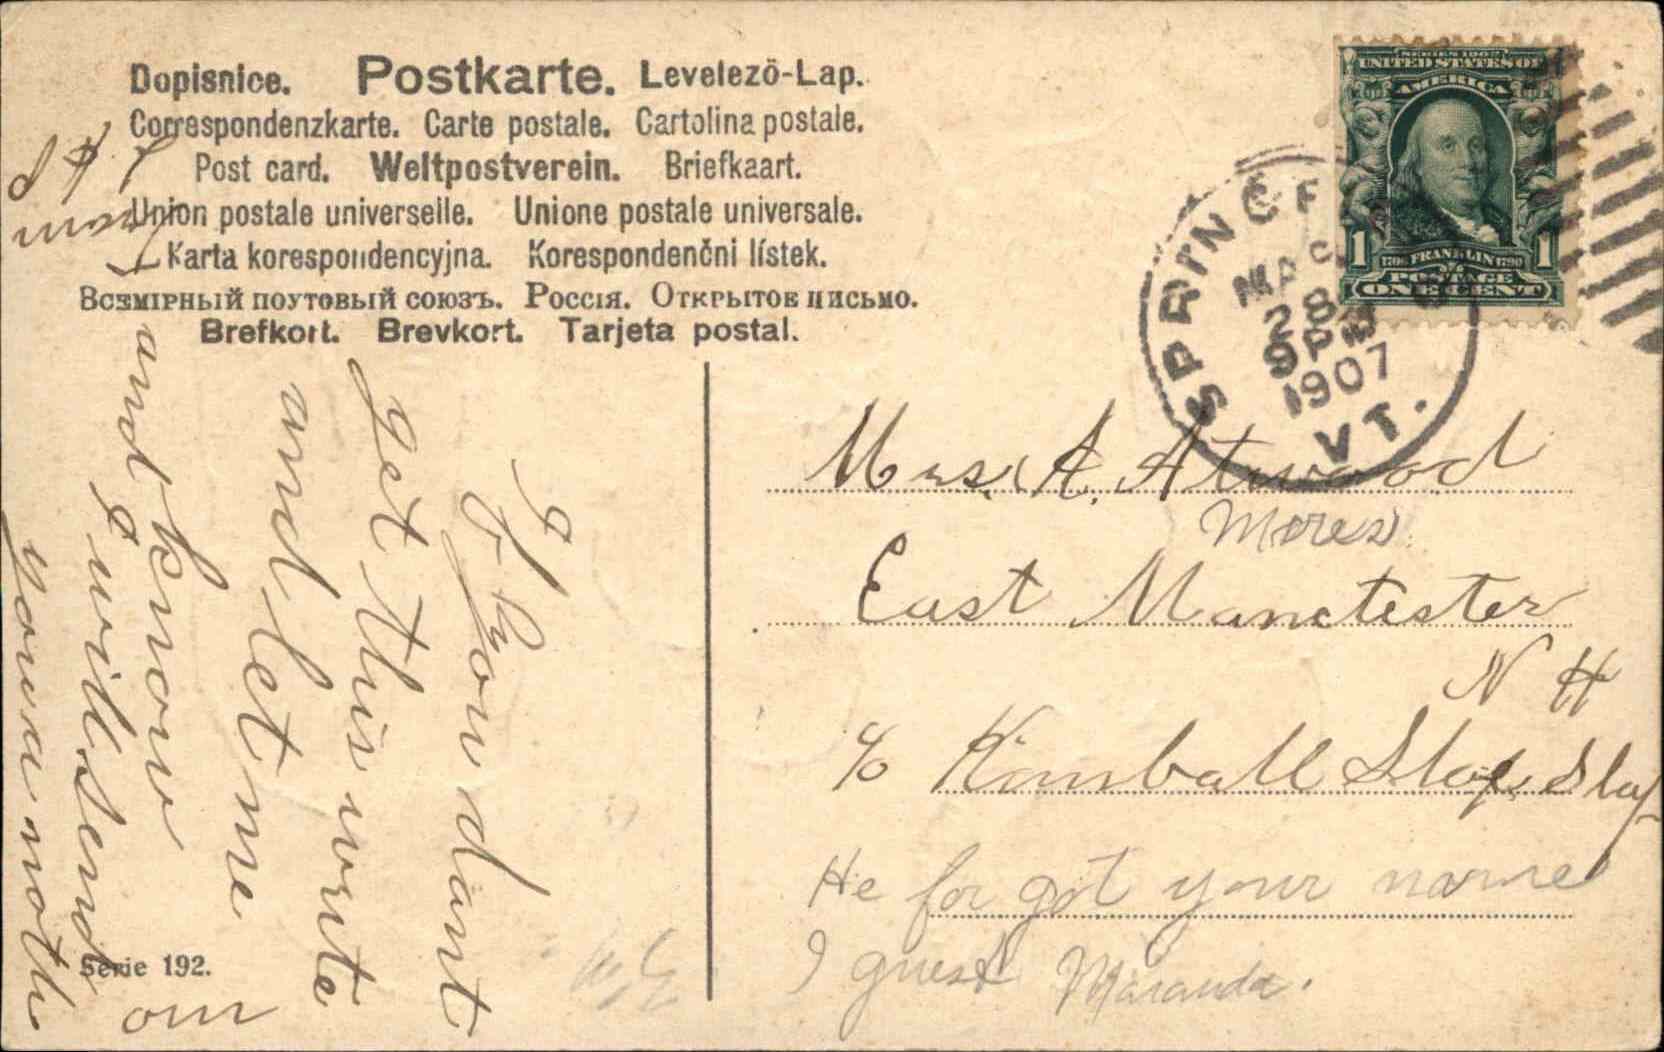 Dopisnice. Postkarte. Levelezö-Lap.
Correspondenzkarte. Carte postale. Cartolina postale.
Post card. Weltpostverein. Briefkaart.
Union postale universelle. Unione postale universale.
Karta korespondencyjna. Korespondenční lístek.
Всэмірный поутовый союзъ. Россія. Открытов письмо.
Brefkort. Brevkort. Tarjeta postal.
SERIES 1902
UNITED STATES OF
AMERICA
1 1
1706 FRANKLIN 1790
POSTAGE
ONE CENT
SPRINGF
MAR
28
9 PM
1907
VT.
Mrs. A. Atwood
Mores
East Manctester
N H
c/o Kimball
He for got your name
I guess Maranda.
If you dant
get this write
and let me
and know
I will send
youu a noth
om
Serie 192.